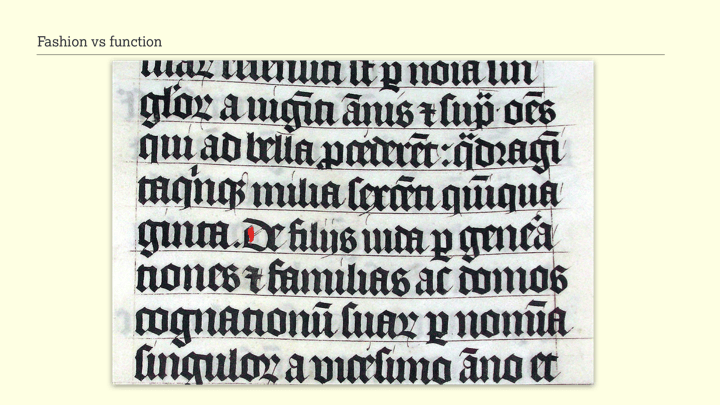 Fashion vs function
p noīa sin
guloꝝ a uigīti ānis ⁊ sup̄ oēs
qui ad bella ꝓcederēt· q̄dragī
taqinqꝫ milia sexcēti quīqua
ginta. De filijs iuda p geneᷓa
tiones ⁊ familias ac domos
cognationū suaꝝ p nomīa
singuloꝝ a uicesimo āno et